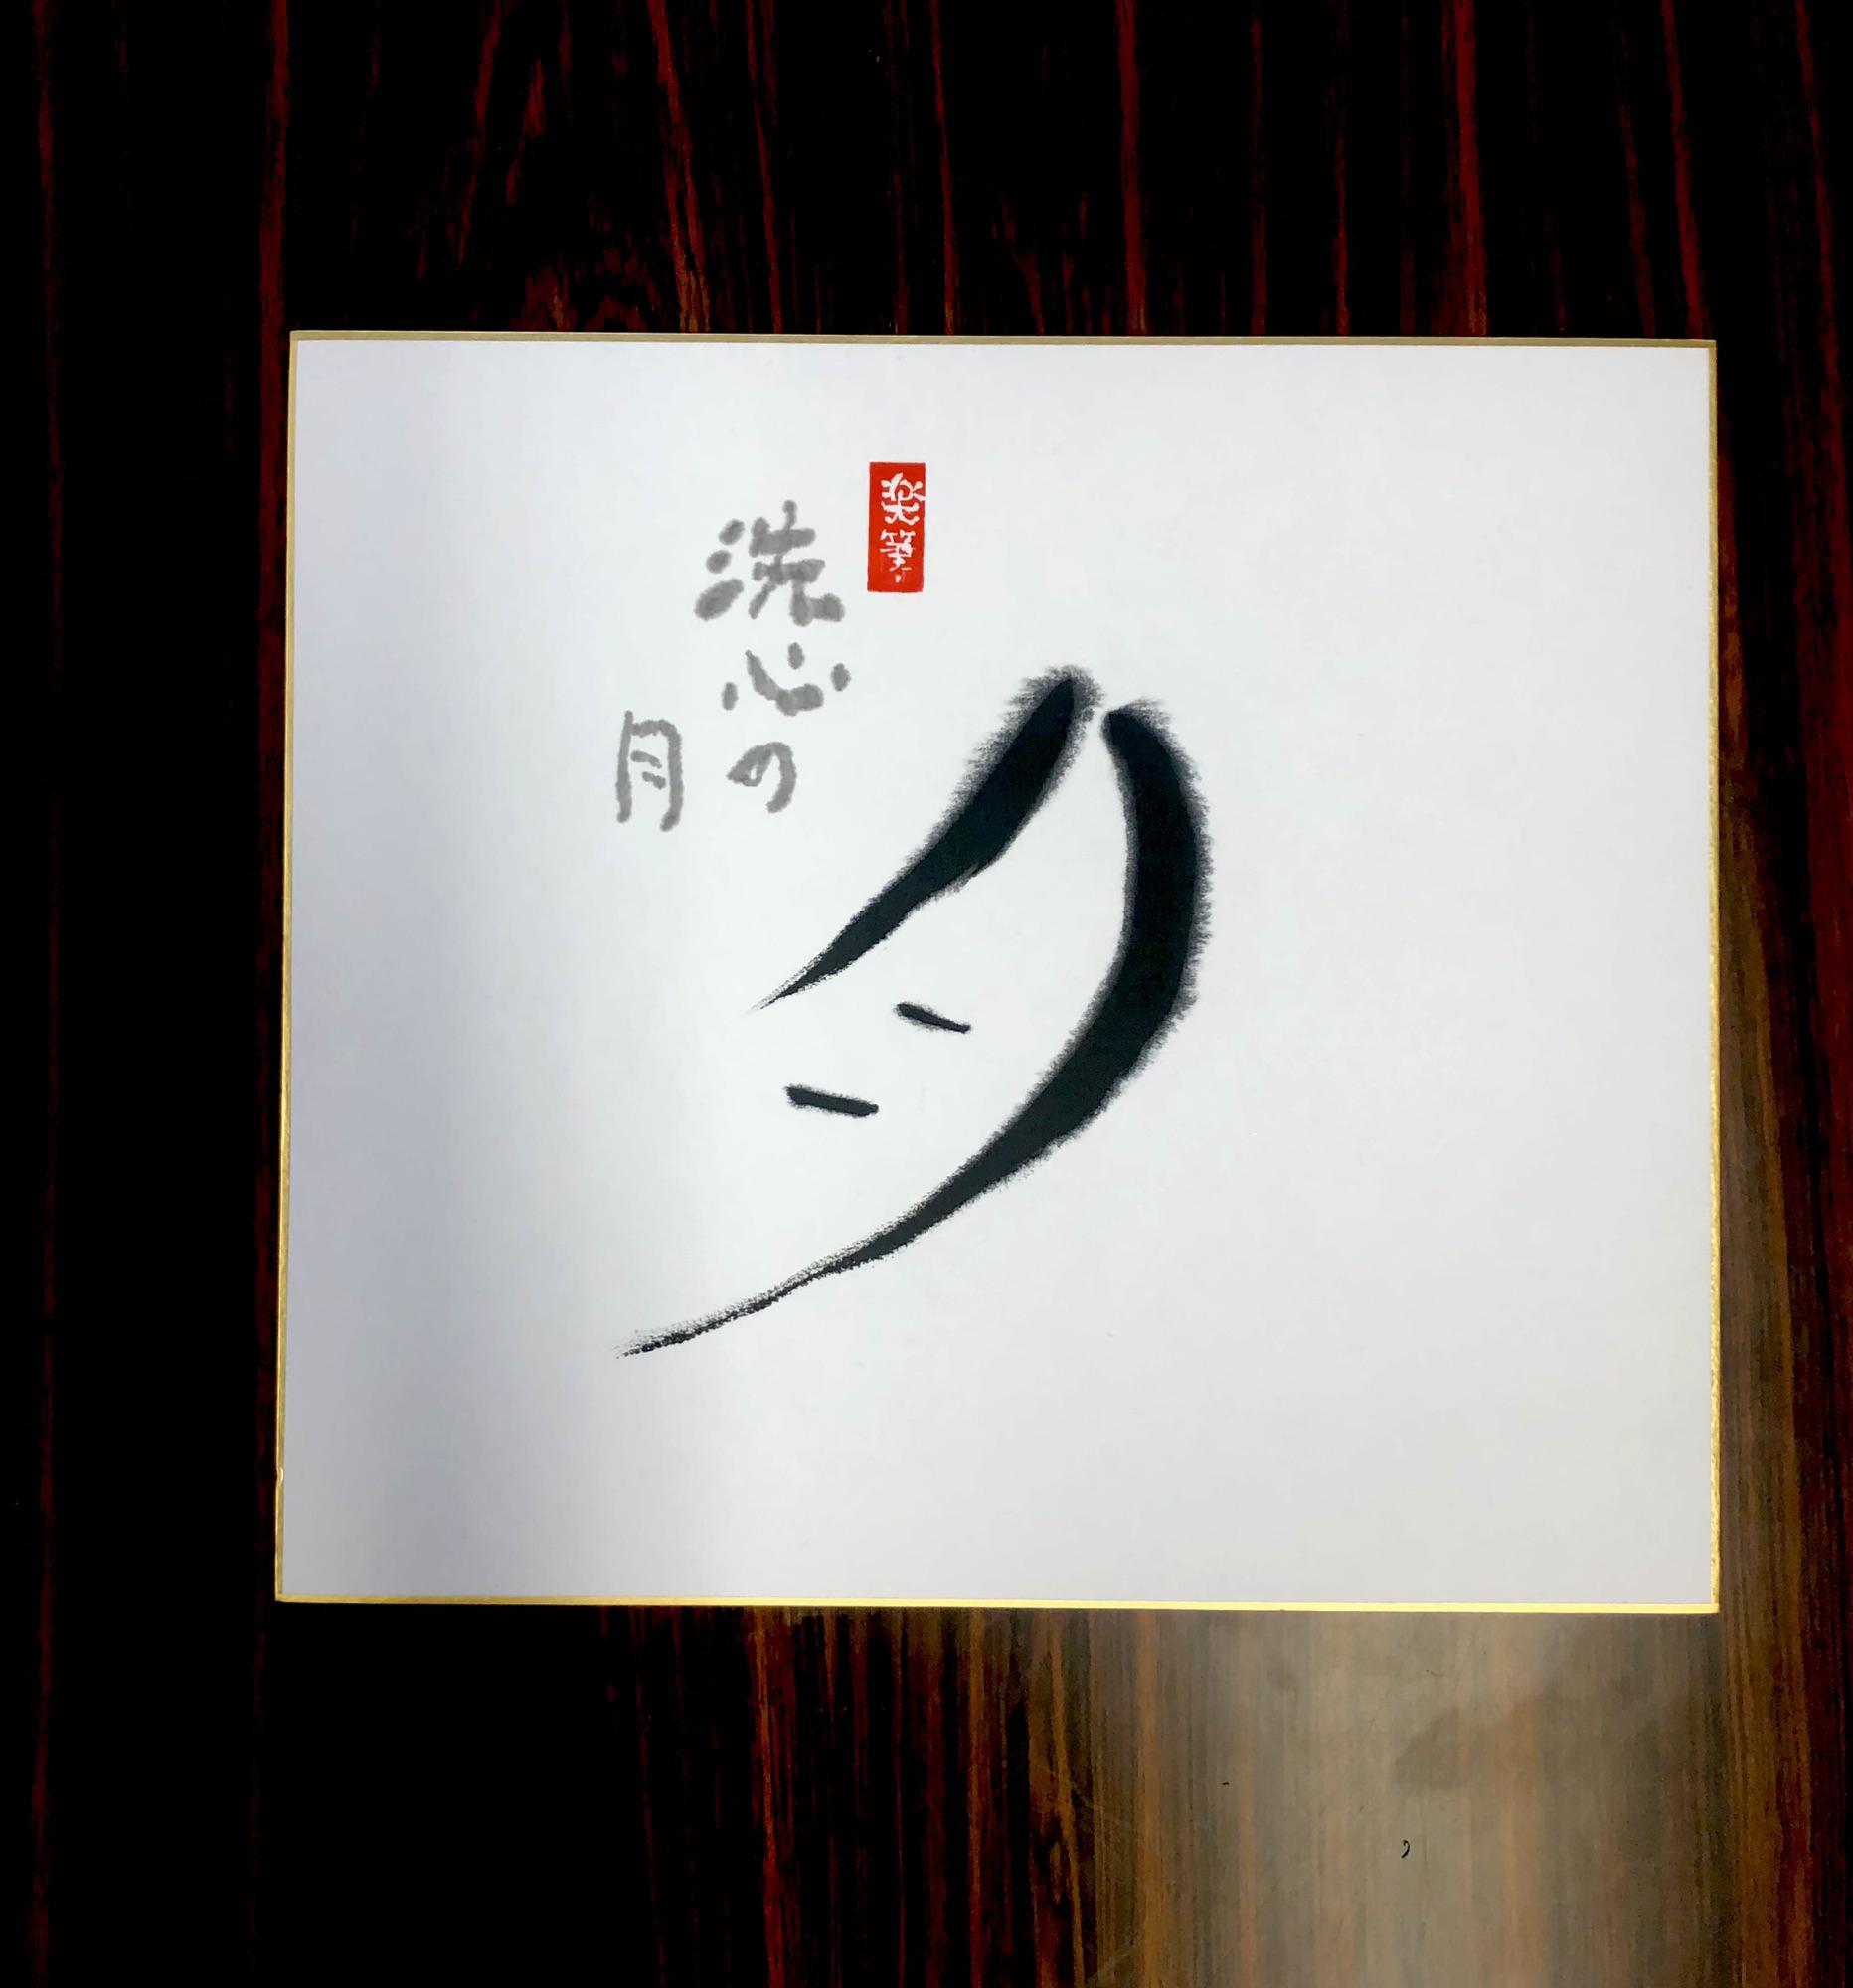 月
楽筆
洗心の
月